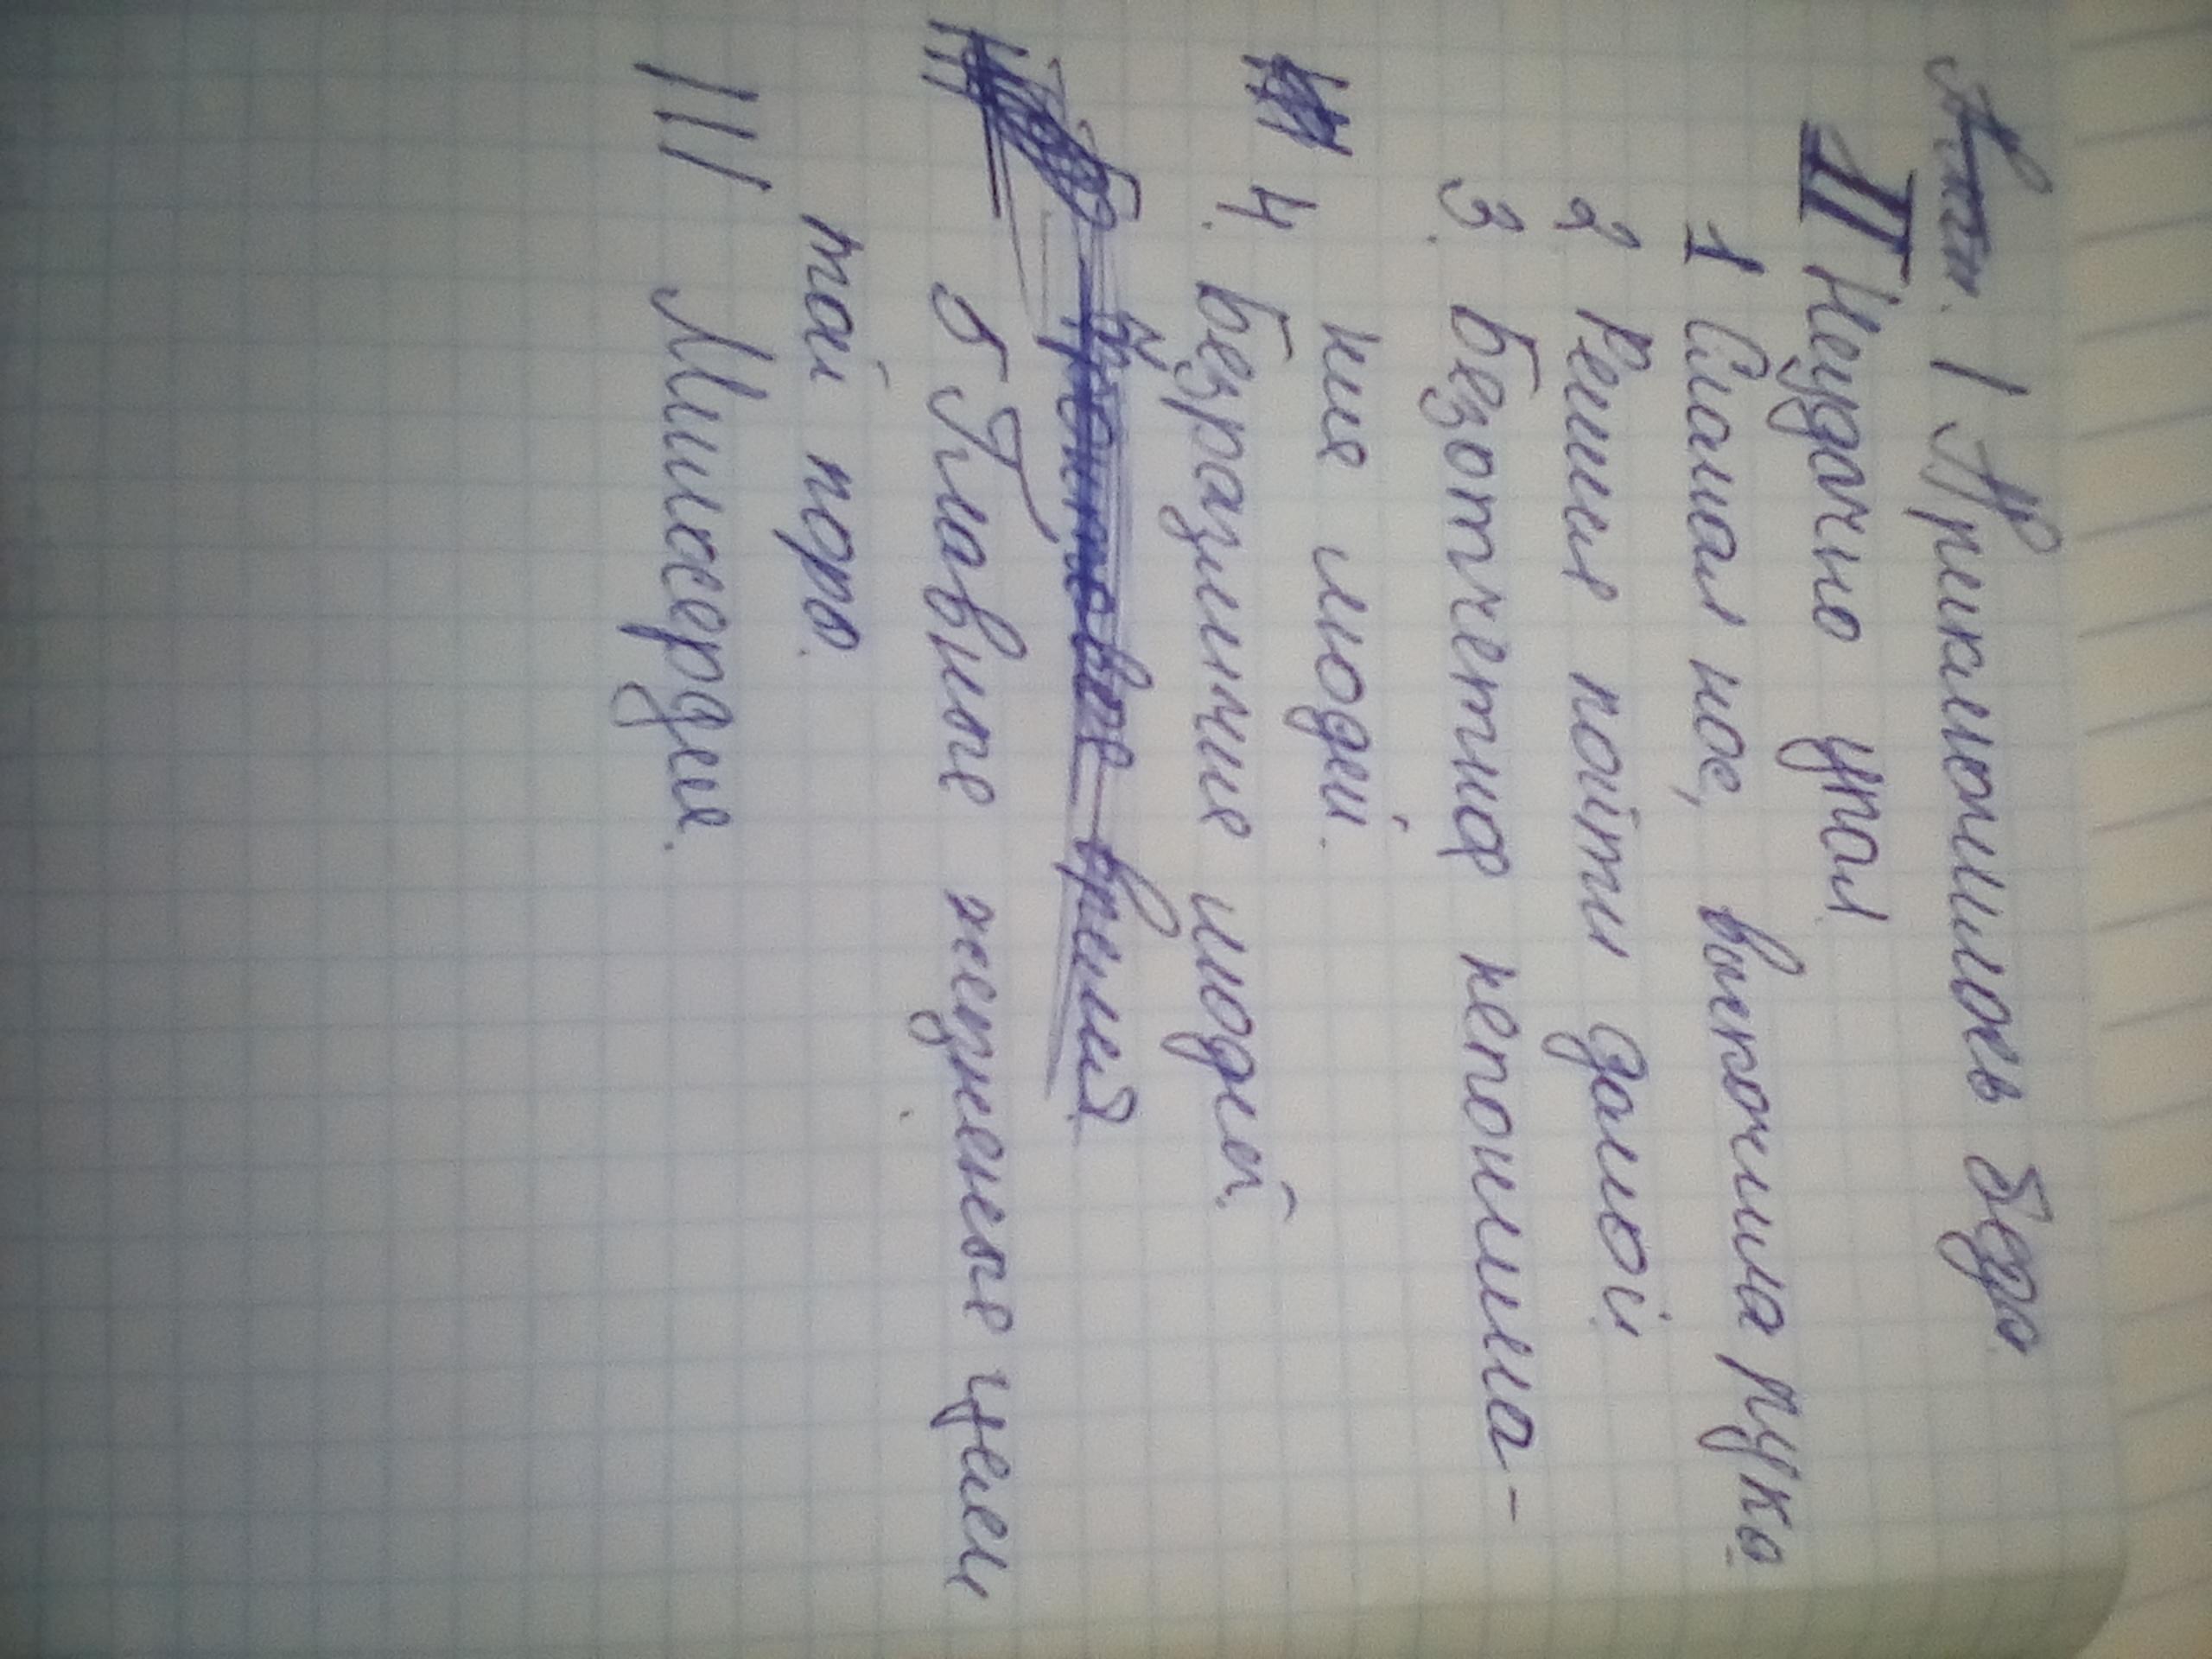 I Приключилось беда.
II Неудачно упал
1 Сломал нос, выскочила рука
2 Решил пойти домой
3. Безотчетное непонима-
ния людей.
4. Безразличие людей.
5 Главные жизненные цели
той поры.
III Милосердие.